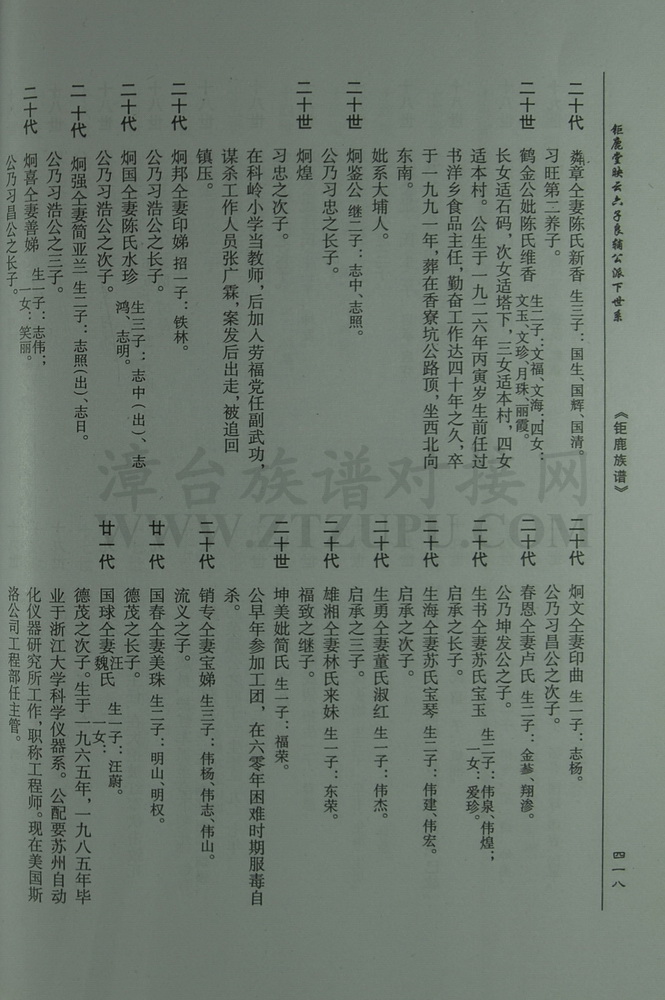 钜鹿堂映云六子良辅公派下世系
《钜鹿族谱》
四一八
二十代 粦章仝妻陈氏新香 生三子：国生、国辉、国清。
习旺第二养子。
二十世 鹤金公妣陈氏维香 生二子：文福、文海；四女：
文玉、文珍、月珠、丽霞。
长女适石码，次女适塔下，三女适本村，四女
适本村。公生于一九二六年丙寅岁生前任过
书洋乡食品主任，勤奋工作达四十年之久，卒
于一九九一年，葬在香寮坑公路顶，坐西北向
东南。
妣系大埔人。
二十世 炯鉴公 继二子：志中、志照。
公乃习忠之长子。
二十世 炯煌
习忠之次子。
在科岭小学当教师，后加入劳福党任副武功，
谋杀工作人员张广霖，案发后出走，被追回
镇压。
二十代 炯邦仝妻印娣 招一子：铁林。
公乃习浩公之长子。
二十代 炯国仝妻陈氏水珍 生三子：志中（出）、志
鸿、志明。
公乃习浩公之次子。
二十代 炯强仝妻简亚兰 生二子：志照（出）、志日。
公乃习浩公之三子。
二十代 炯喜仝妻善娣 生一子：志伟；
一女：笑丽。
公乃习昌公之长子。
二十代 炯文仝妻印曲 生一子：志杨。
公乃习昌公之次子。
二十代 春恩仝妻卢氏 生二子：金蔘、翔渗。
公乃坤发公之子。
二十代 生书仝妻苏氏宝玉 生二子：伟泉、伟煌；
一女：爱珍。
启承之长子。
二十代 生海仝妻苏氏宝琴 生二子：伟建、伟宏。
启承之次子。
二十代 生勇仝妻董氏淑红 生一子：伟杰。
启承之三子。
二十代 雄湘仝妻林氏来妹 生一子：东荣。
福致之继子。
二十世 坤美妣简氏 生一子：福荣。
公早年参加工团，在六零年困难时期服毒自
杀。
二十代 销专仝妻宝娣 生三子：伟杨、伟志、伟山。
流义之子。
廿一代 国春仝妻美珠 生二子：明山、明权。
德茂之长子。
廿一代 国球仝妻汪
魏氏 生一子：汪蔚。
一女：
德茂之次子。生于一九六五年，一九八五年毕
业于浙江大学科学仪器系。公配要苏州自动
化仪器研究所工作，职称工程师。现在美国斯
洛公司工程部任主管。
漳台族谱对接网
WWW.ZTZUPU.COM